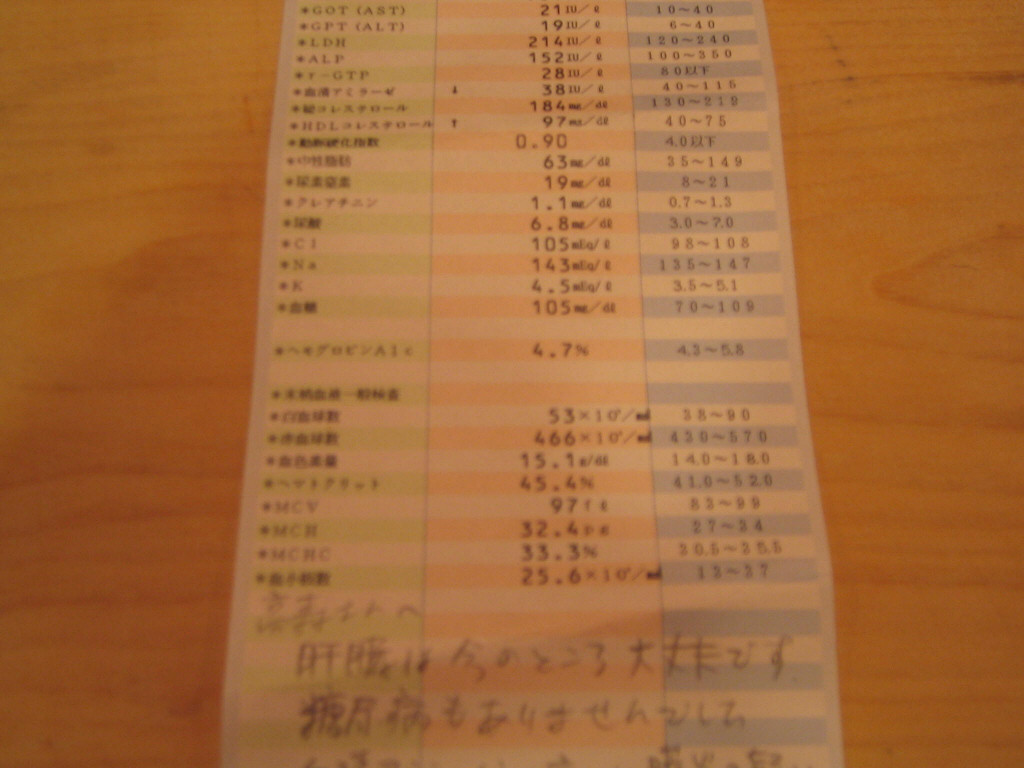 *GOT(AST) 21IU/ℓ 10~40
*GPT(ALT) 19IU/ℓ 6~40
*LDH 214IU/ℓ 120~240
*ALP 152IU/ℓ 100~350
*γ-GTP 28IU/ℓ 80以下
*血清アミラーゼ ↓ 38IU/ℓ 40~115
*総コレステロール 184mg/dℓ 130~219
*HDLコレステロール ↑ 97mg/dℓ 40~75
*動脈硬化指数 0.90 4.0以下
*中性脂肪 63mg/dℓ 35~149
*尿素窒素 19mg/dℓ 8~21
*クレアチニン 1.1mg/dℓ 0.7~1.3
*尿酸 6.8mg/dℓ 3.0~7.0
*Cl 105mEq/ℓ 98~108
*Na 143mEq/ℓ 135~147
*K 4.5mEq/ℓ 3.5~5.1
*血糖 105mg/dℓ 70~109
*ヘモグロビンA1c 4.7% 4.3~5.8
*末梢血液一般検査
*白血球数 53×10²/㎣ 38~90
*赤血球数 466×10⁴/㎣ 430~570
*血色素量 15.1g/dℓ 14.0~18.0
*ヘマトクリット 45.4% 41.0~52.0
*MCV 97fℓ 83~99
*MCH 32.4pg 27~34
*MCHC 33.3% 30.5~35.5
*血小板数 25.6×10⁴/㎣ 13~37
肝臓は今のところ大丈夫です
糖尿病もありませんでした